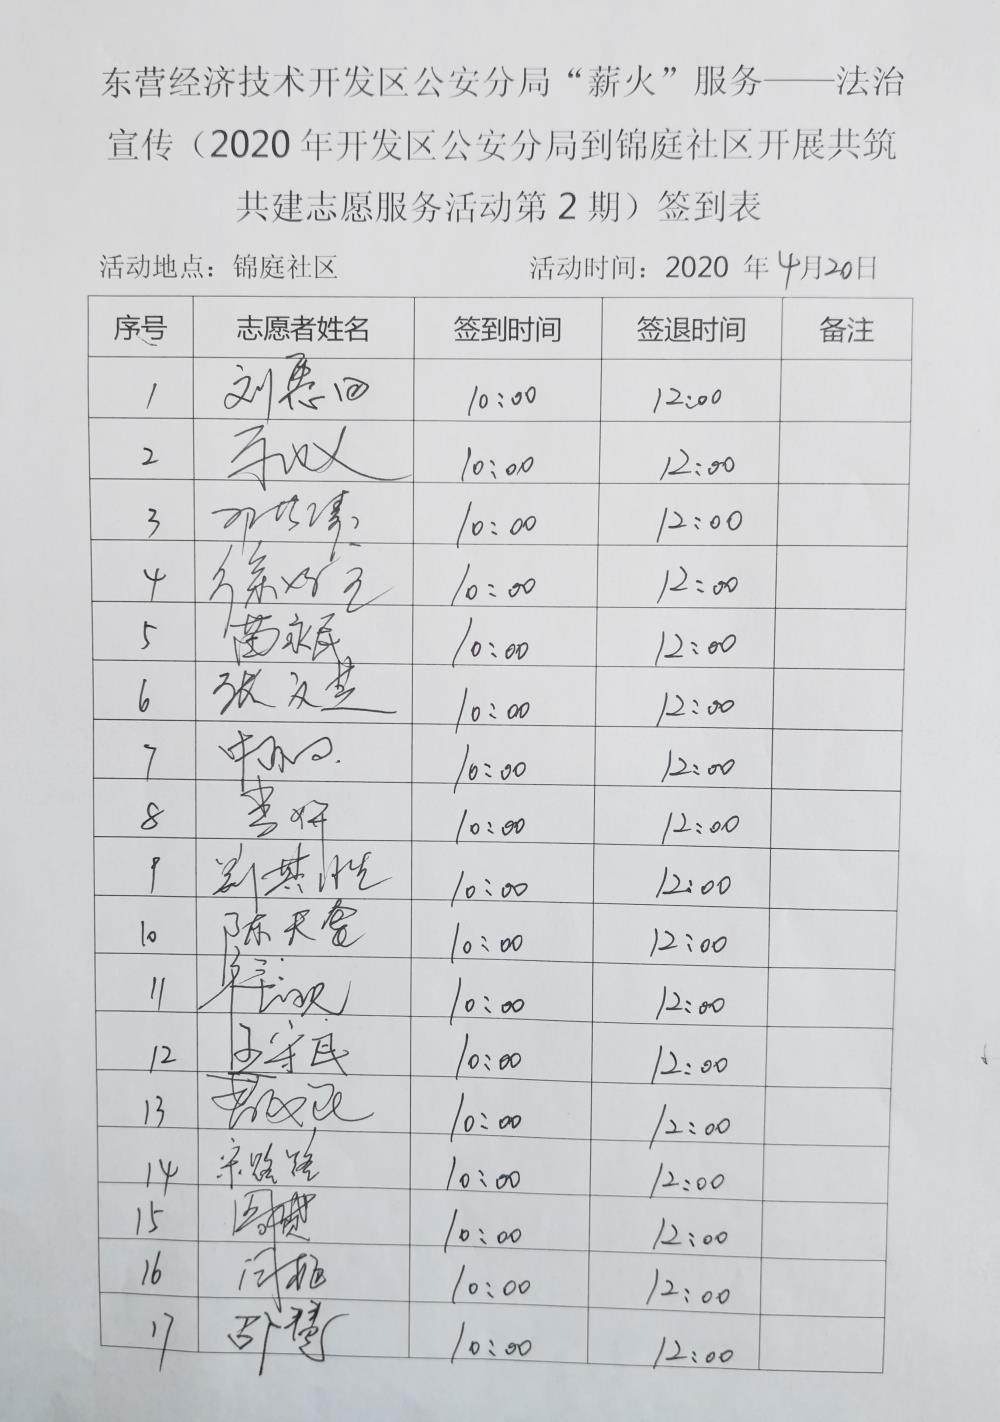 东营经济技术开发区公安分局“薪火”服务——法治
宣传（2020 年开发区公安分局到锦庭社区开展共筑
共建志愿服务活动第 2 期）签到表
活动地点：锦庭社区 活动时间：2020 年 4月20日
序号 志愿者姓名 签到时间 签退时间 备注
1 10:00 12:00
2 10:00 12:00
3 10:00 12:00
4 10:00 12:00
5 苗永民 10:00 12:00
6 张文 10:00 12:00
7 10:00 12:00
8 10:00 12:00
9 刘其胜 10:00 12:00
10 陈天 10:00 12:00
11 10:00 12:00
12 王守民 10:00 12:00
13 10:00 12:00
14 宋路路 10:00 12:00
15 10:00 12:00
16 10:00 12:00
17 10:00 12:00